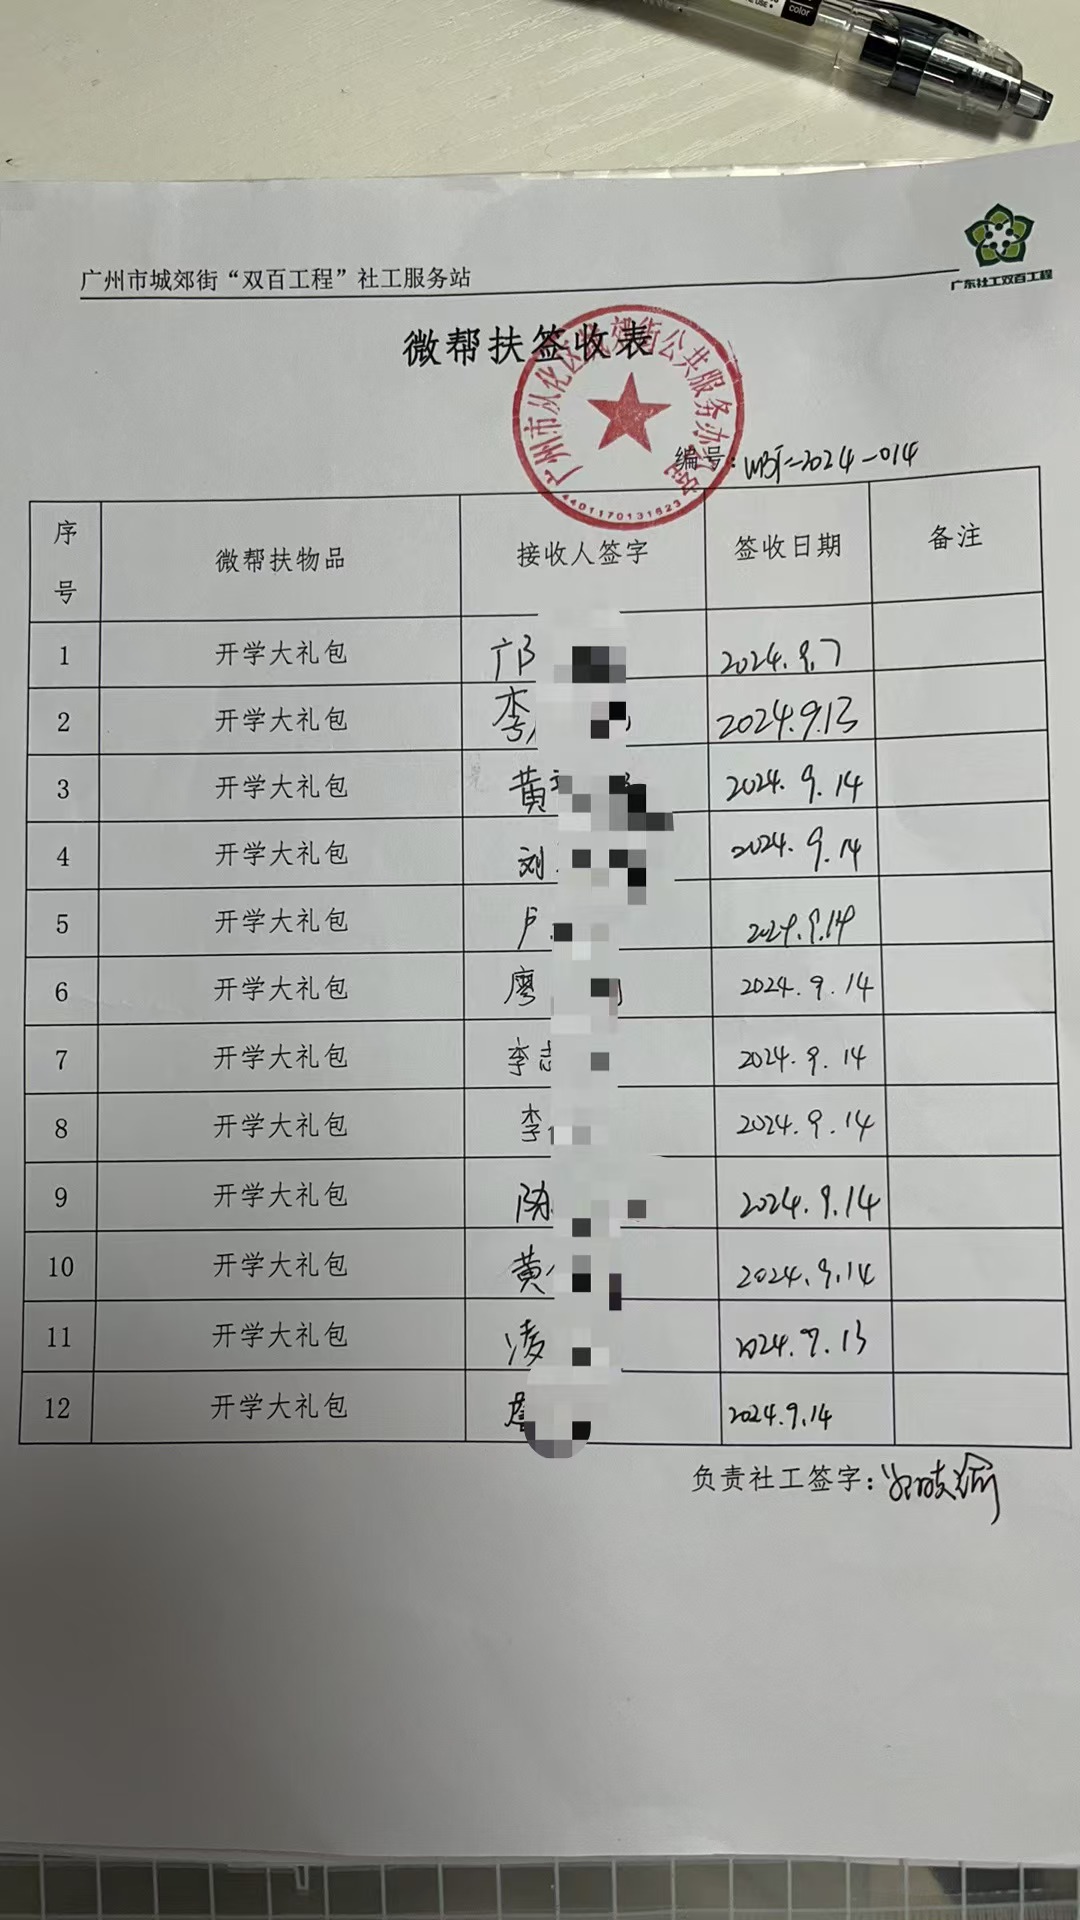 color
广州市城郊街“双百工程”社工服务站
广东社工双百工程
微帮扶签收表
广州市从化区城郊街公共服务办公室
4401170131623
编号：WBF-2024-014
序号 微帮扶物品 接收人签字 签收日期 备注
1 开学大礼包 邝 2024.9.7
2 开学大礼包 李 2024.9.13
3 开学大礼包 黄 2024.9.14
4 开学大礼包 刘 2024.9.14
5 开学大礼包 卢 2024.9.14
6 开学大礼包 廖 2024.9.14
7 开学大礼包 李志 2024.9.14
8 开学大礼包 李 2024.9.14
9 开学大礼包 陈 2024.9.14
10 开学大礼包 黄 2024.9.14
11 开学大礼包 凌 2024.9.13
12 开学大礼包 2024.9.14
负责社工签字：